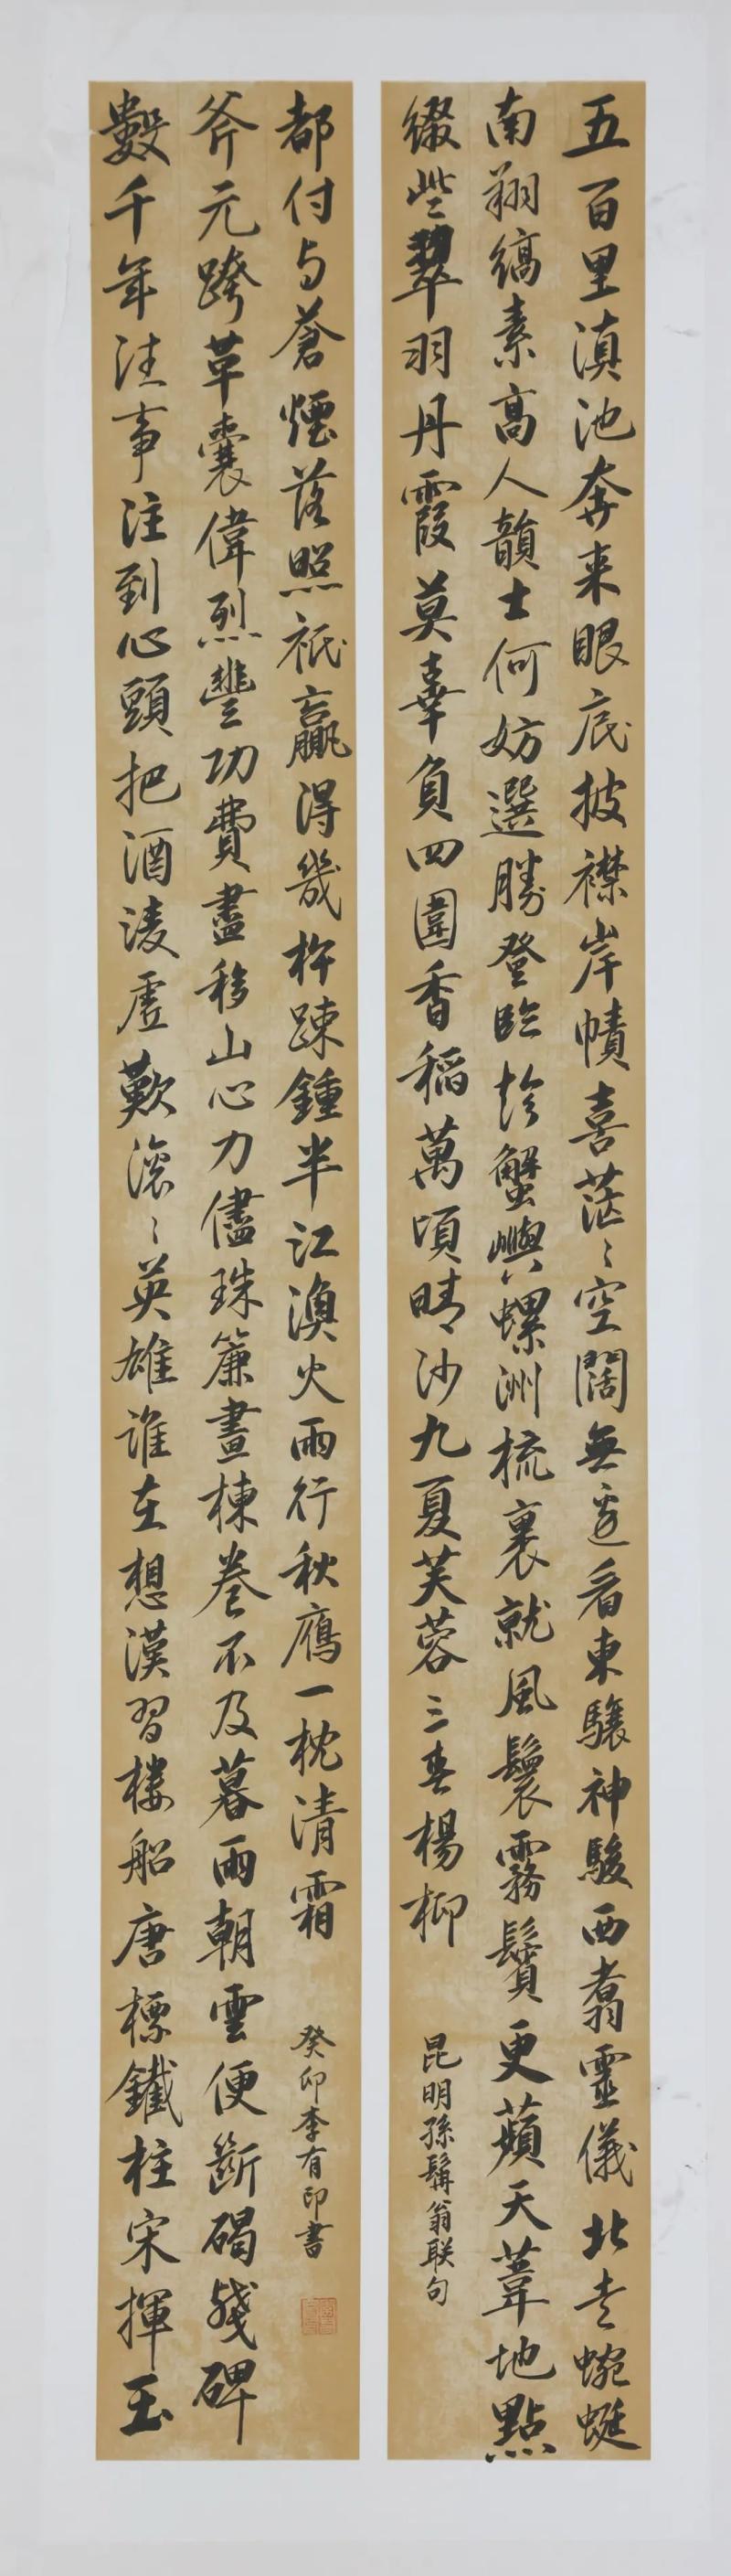 五百里滇池奔来眼底披襟岸幘喜茫〻空闊無邊看東驤神駿西翥靈儀北走蜿蜒
南翔縞素高人韻士何妨選勝登臨趁蟹嶼螺洲梳裹就風鬟霧鬢更蘋天葦地點
綴些翠羽丹霞莫辜負四圍香稻萬頃晴沙九夏芙蓉三春楊柳
昆明孫髯翁联句
數千年往事注到心頭把酒凌虛歎滚〻英雄誰在想漢習樓船唐標鐵柱宋揮玉
斧元跨革囊偉烈豐功費盡移山心力儘珠簾畫棟卷不及暮雨朝雲便斷碣殘碑
都付与蒼煙落照祇贏得幾杵疎鍾半江漁火兩行秋雁一枕清霜
癸卯李有印書